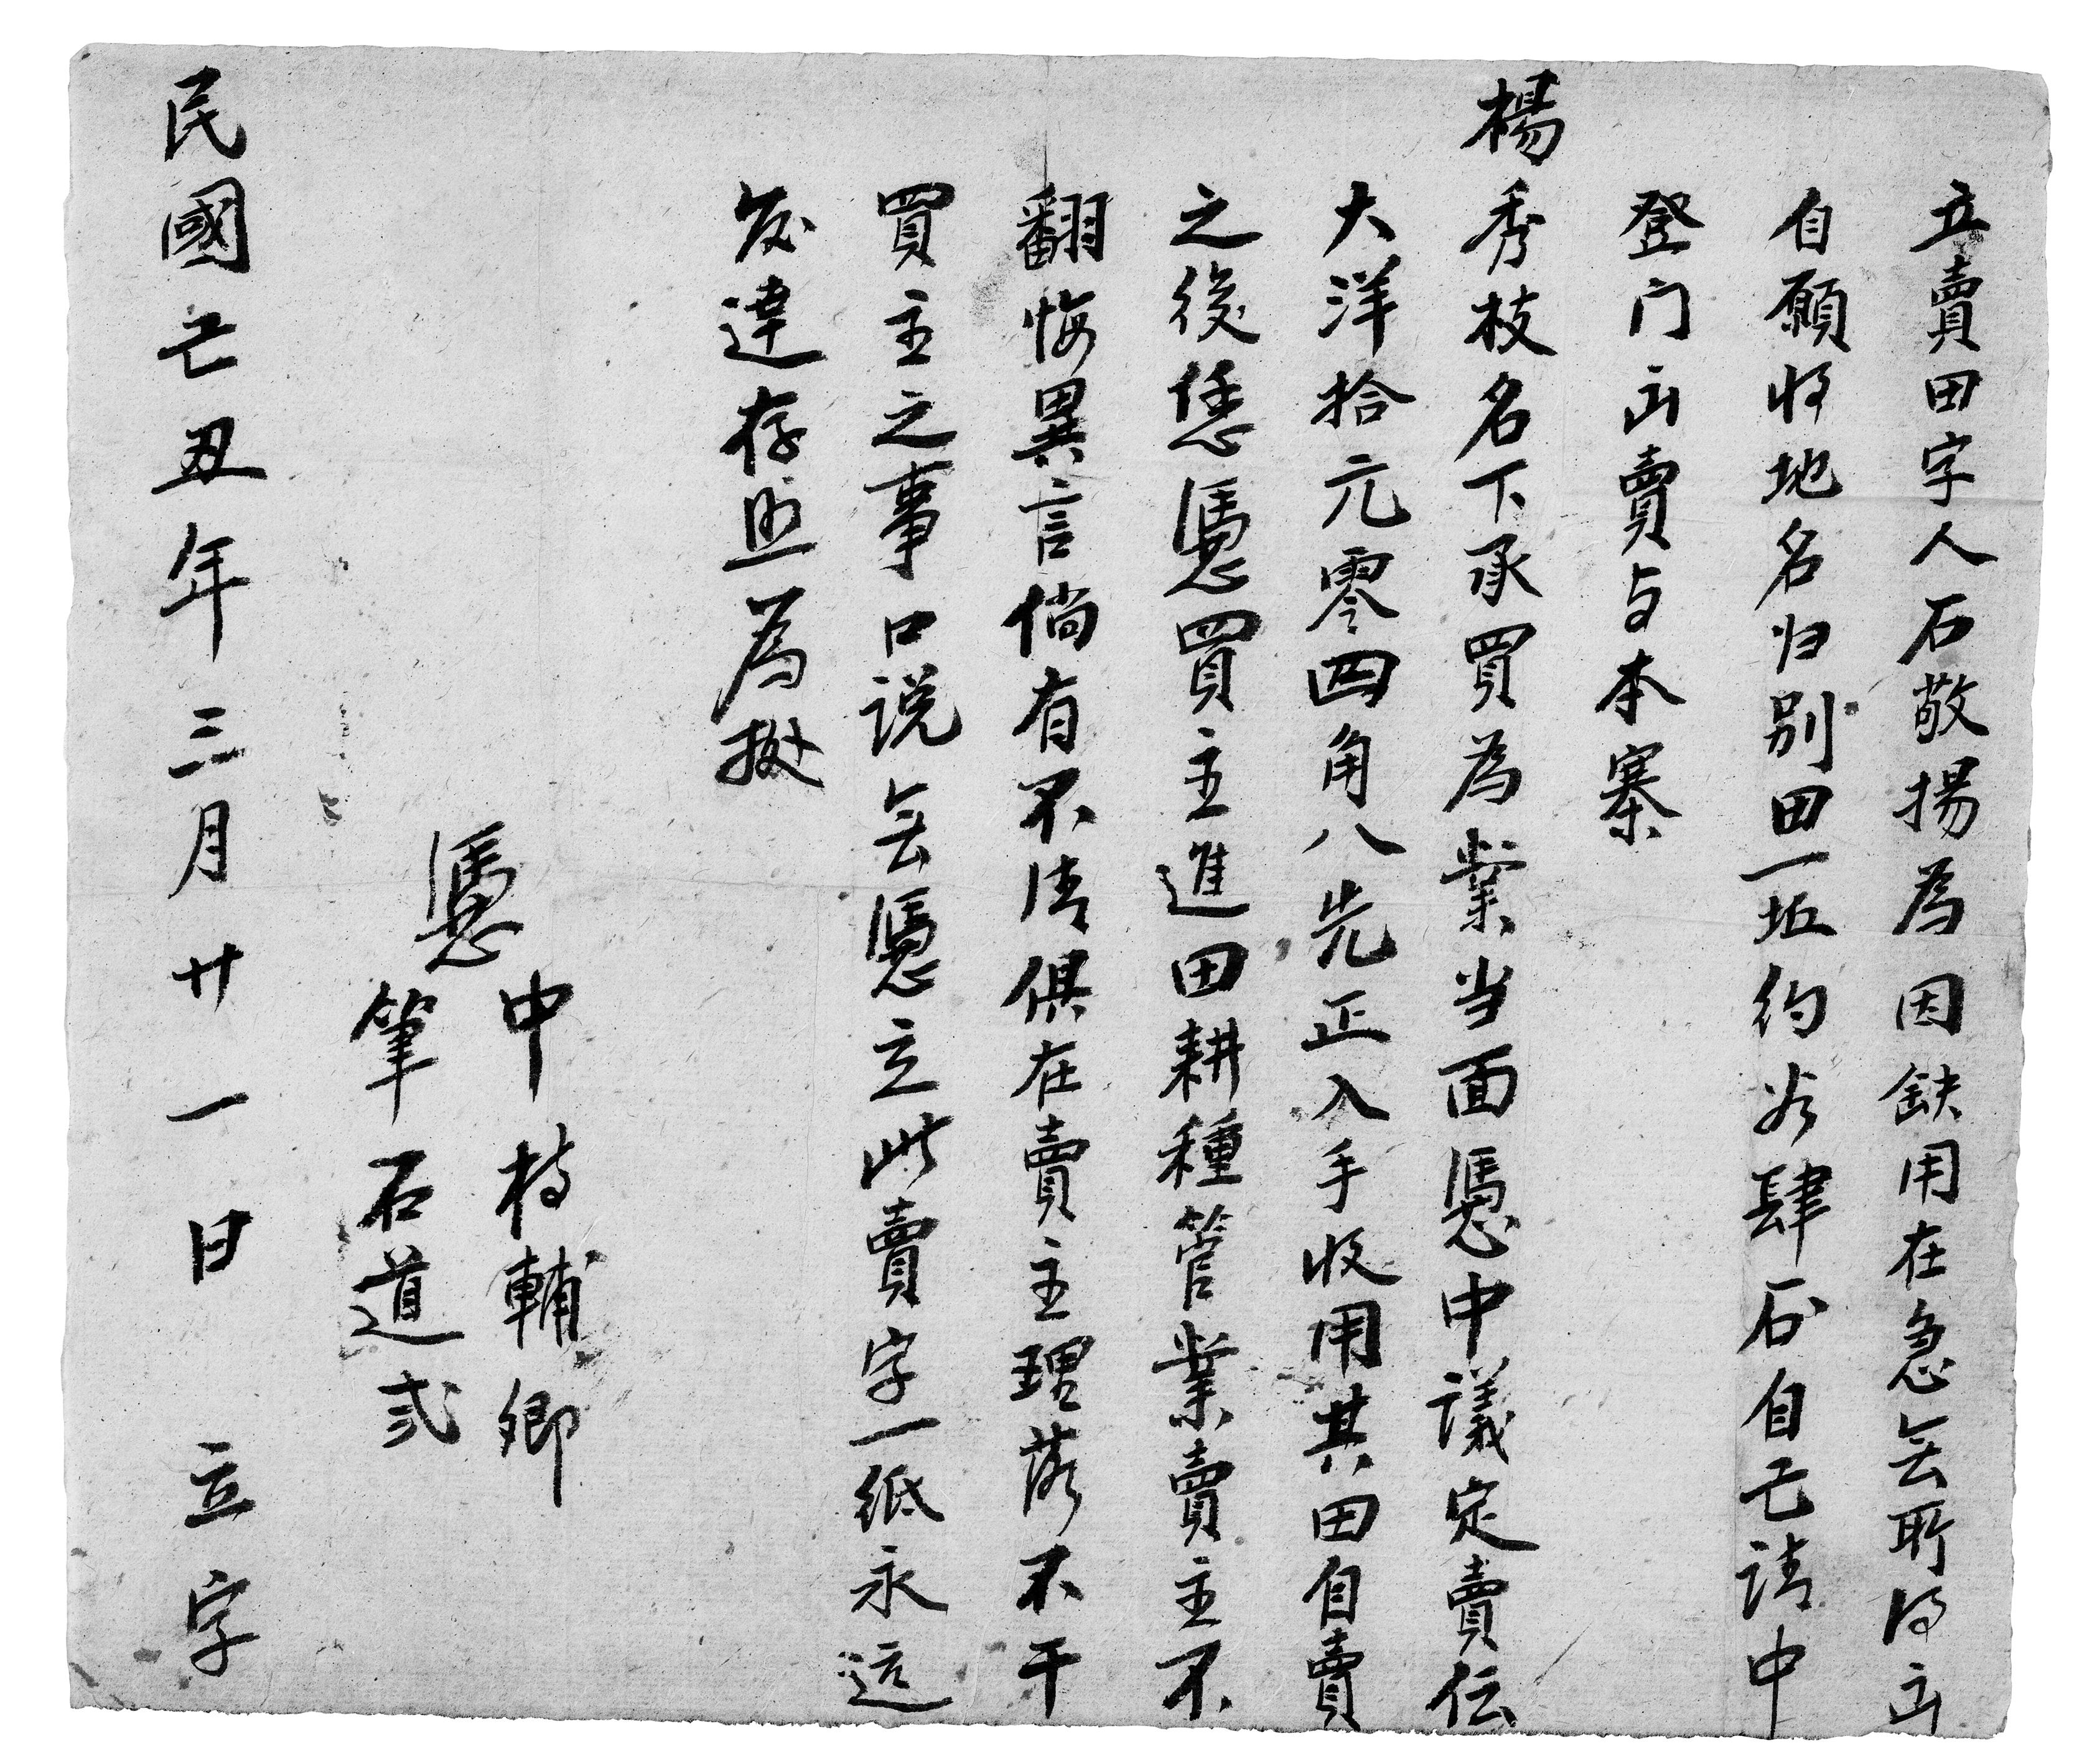 立賣田字人石敬揚為因缺用在急無所得出
自願将地名归别田一坵约谷肆石自己请中
登门出賣与本寨
楊秀枝名下承買為業当面憑中議定賣伝
大洋拾元零四角八先正入手收用其田自賣
之後恁憑買主進田耕種管業賣主不
翻悔異言倘有不清俱在賣主理落不干
買主之事口说無憑立此賣字一紙永远
發達存照為據
憑
中 輔卿
筆石道弍
民國丑年三月廿一日 立字